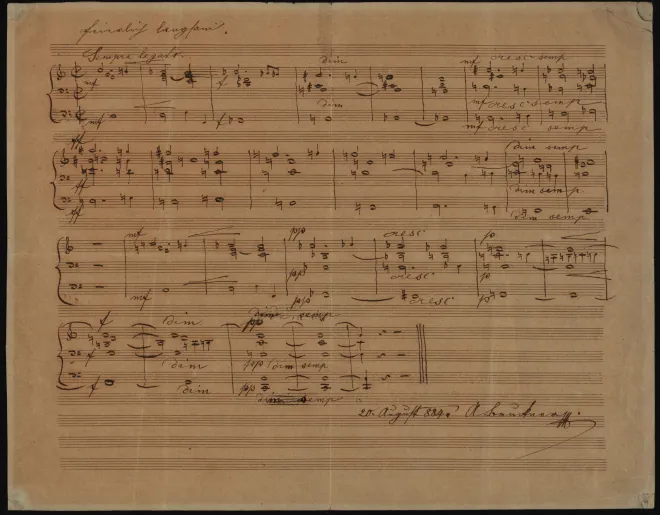 feierlich langsam.
Sempre legato.
dim mf cresc semp
mf f
dim mf cresc semp
mf mf cresc semp
ff dim semp
ff dim semp
ff dim semp
mf pp cresc p
pp cresc p
mf pp cresc p
f dim dim semp
ppp
f dim ppp dim semp
f dim ppp dim semp
20. August 884. A Bruckner